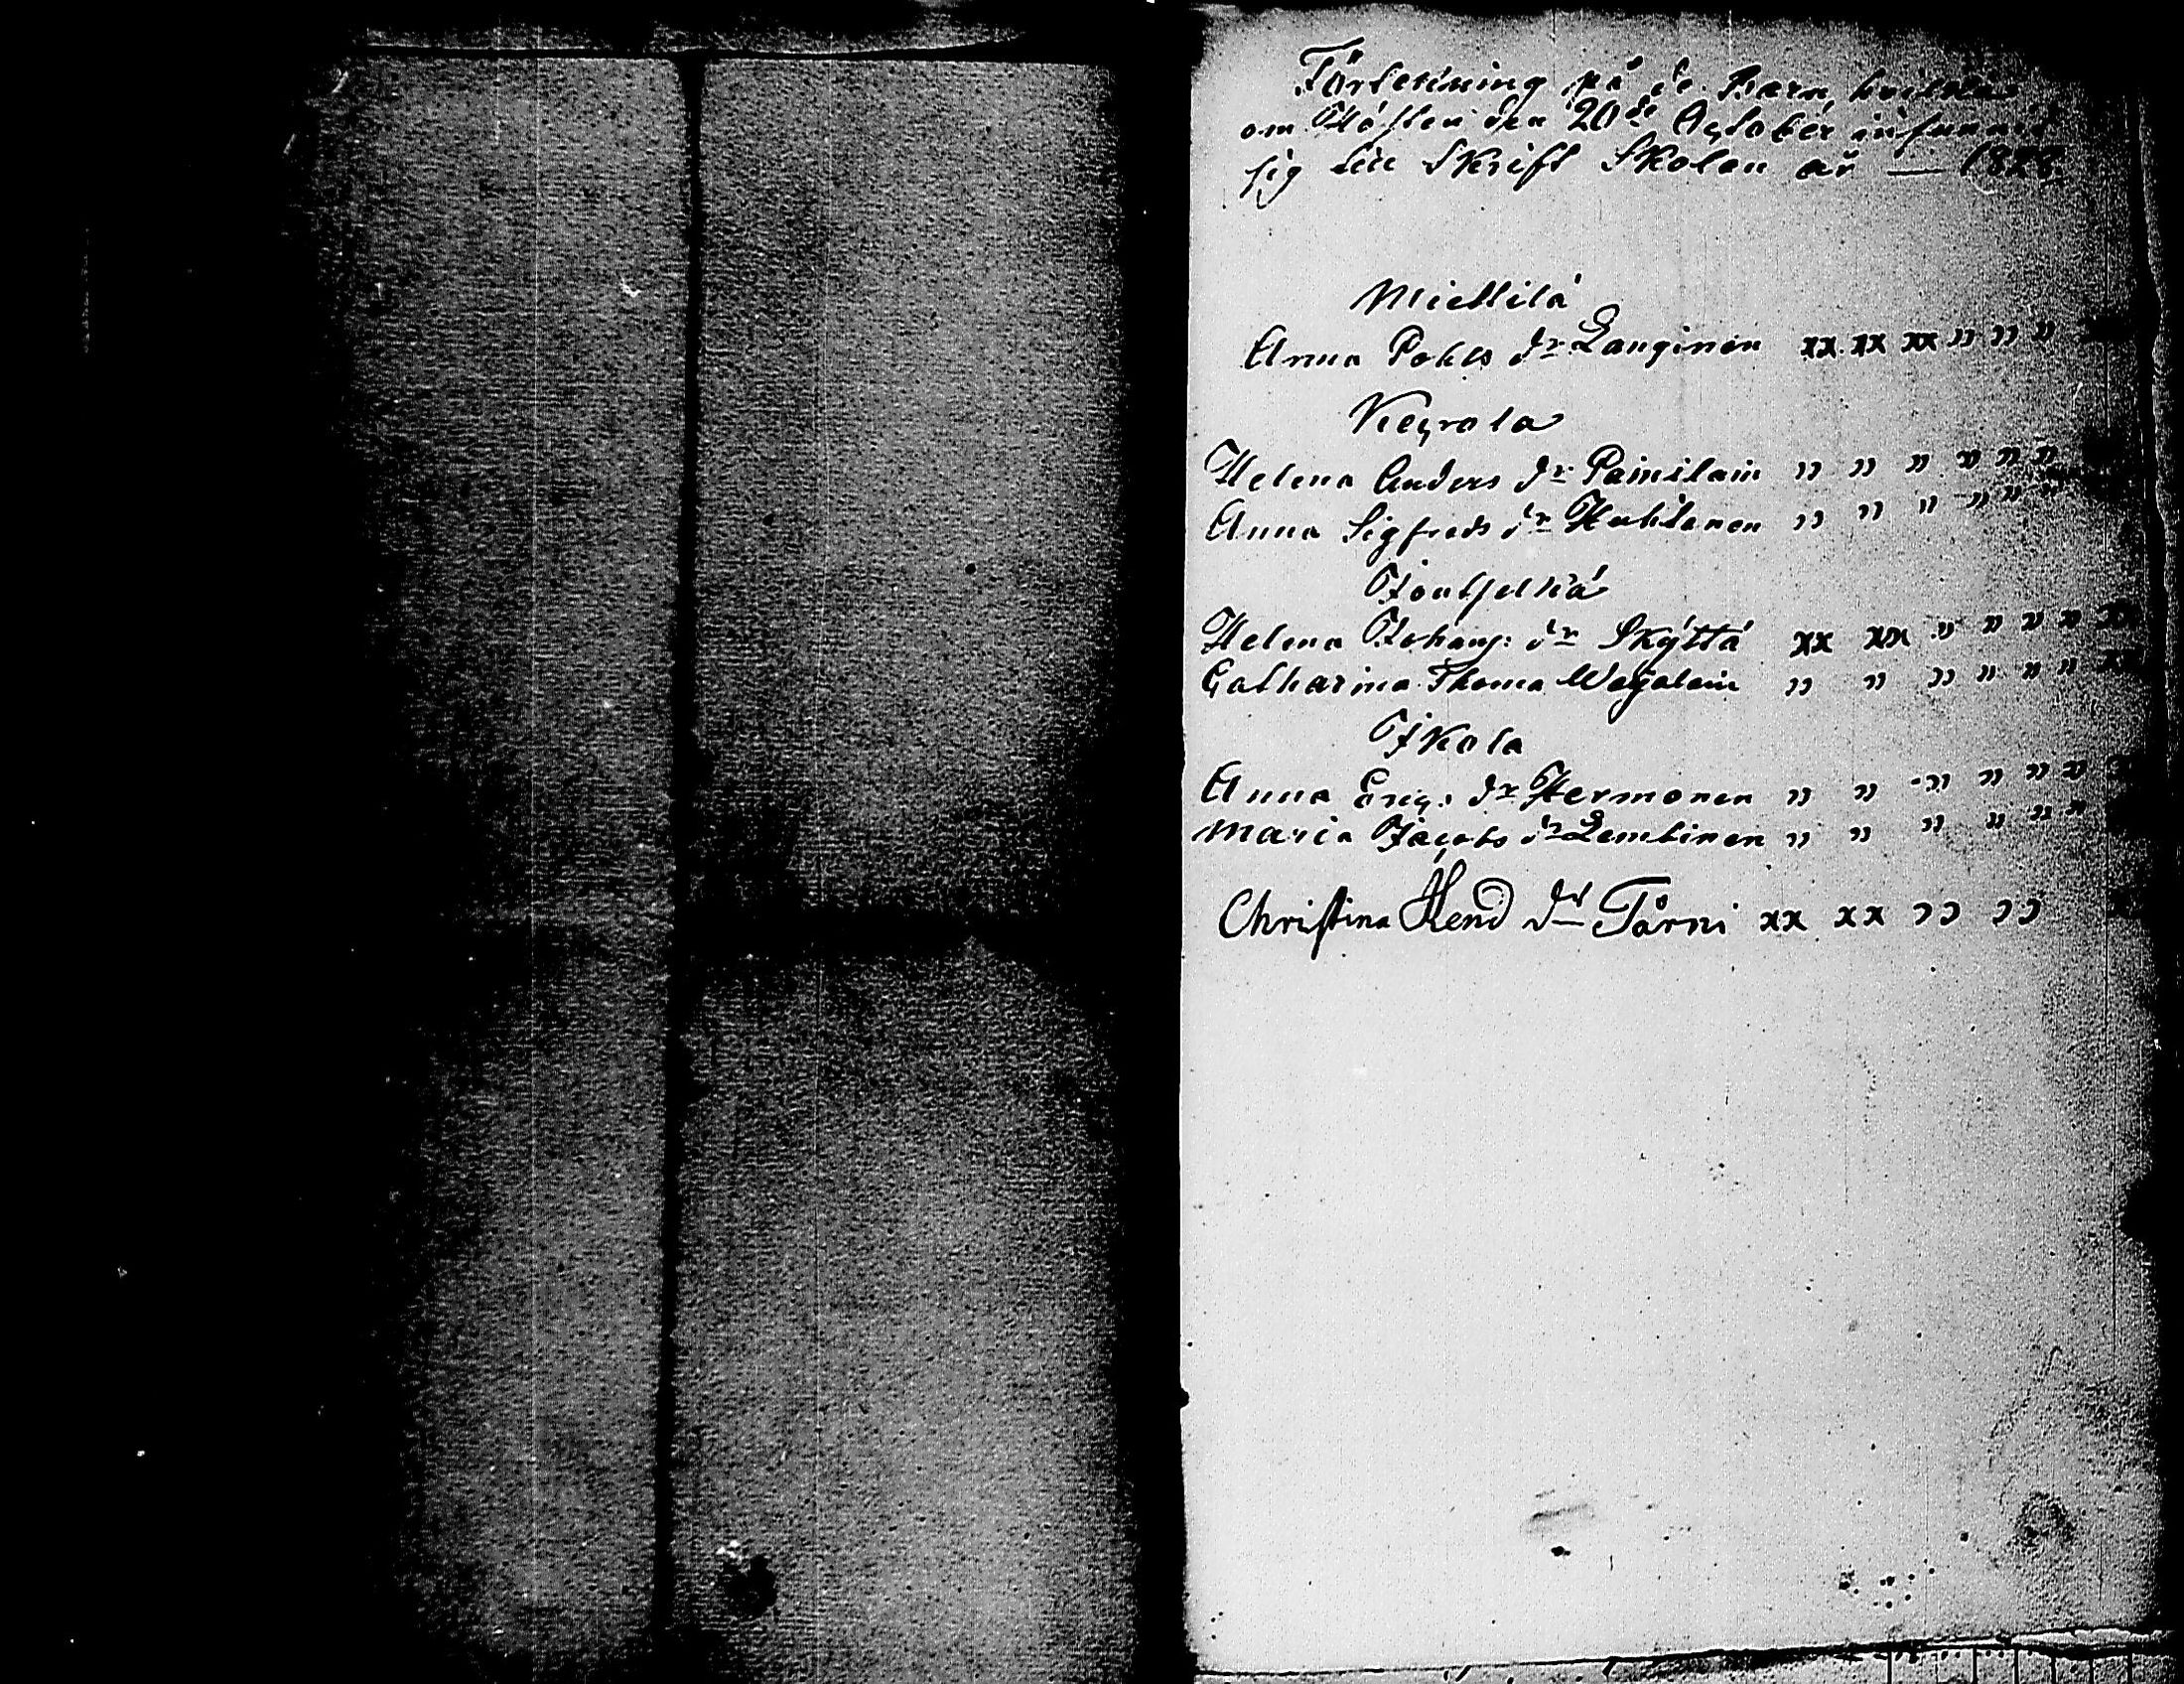 Förteckning på de Barn, hvilka
om Hösten den 20de October infunnit
sig till Skrift Skolan år — 182
Miettilä
Anna Pohls dr Langinen xx xx xx " " "
Keyrola
Helena Anders dr Painilain " " " " " "
Anna Sigfreds dr Huhtanen " " " " " "
Joutselkä
Helena Johans: dr Skÿttä xx xx " " " "
Catharina Thoma Wäÿalain " " " " " "
Ikola
Anna Eric: dr Hermonen " " " " " "
Maria Jacobs dr Lembinen " " " " " "
Christina Hend dr Tårni xx xx " "